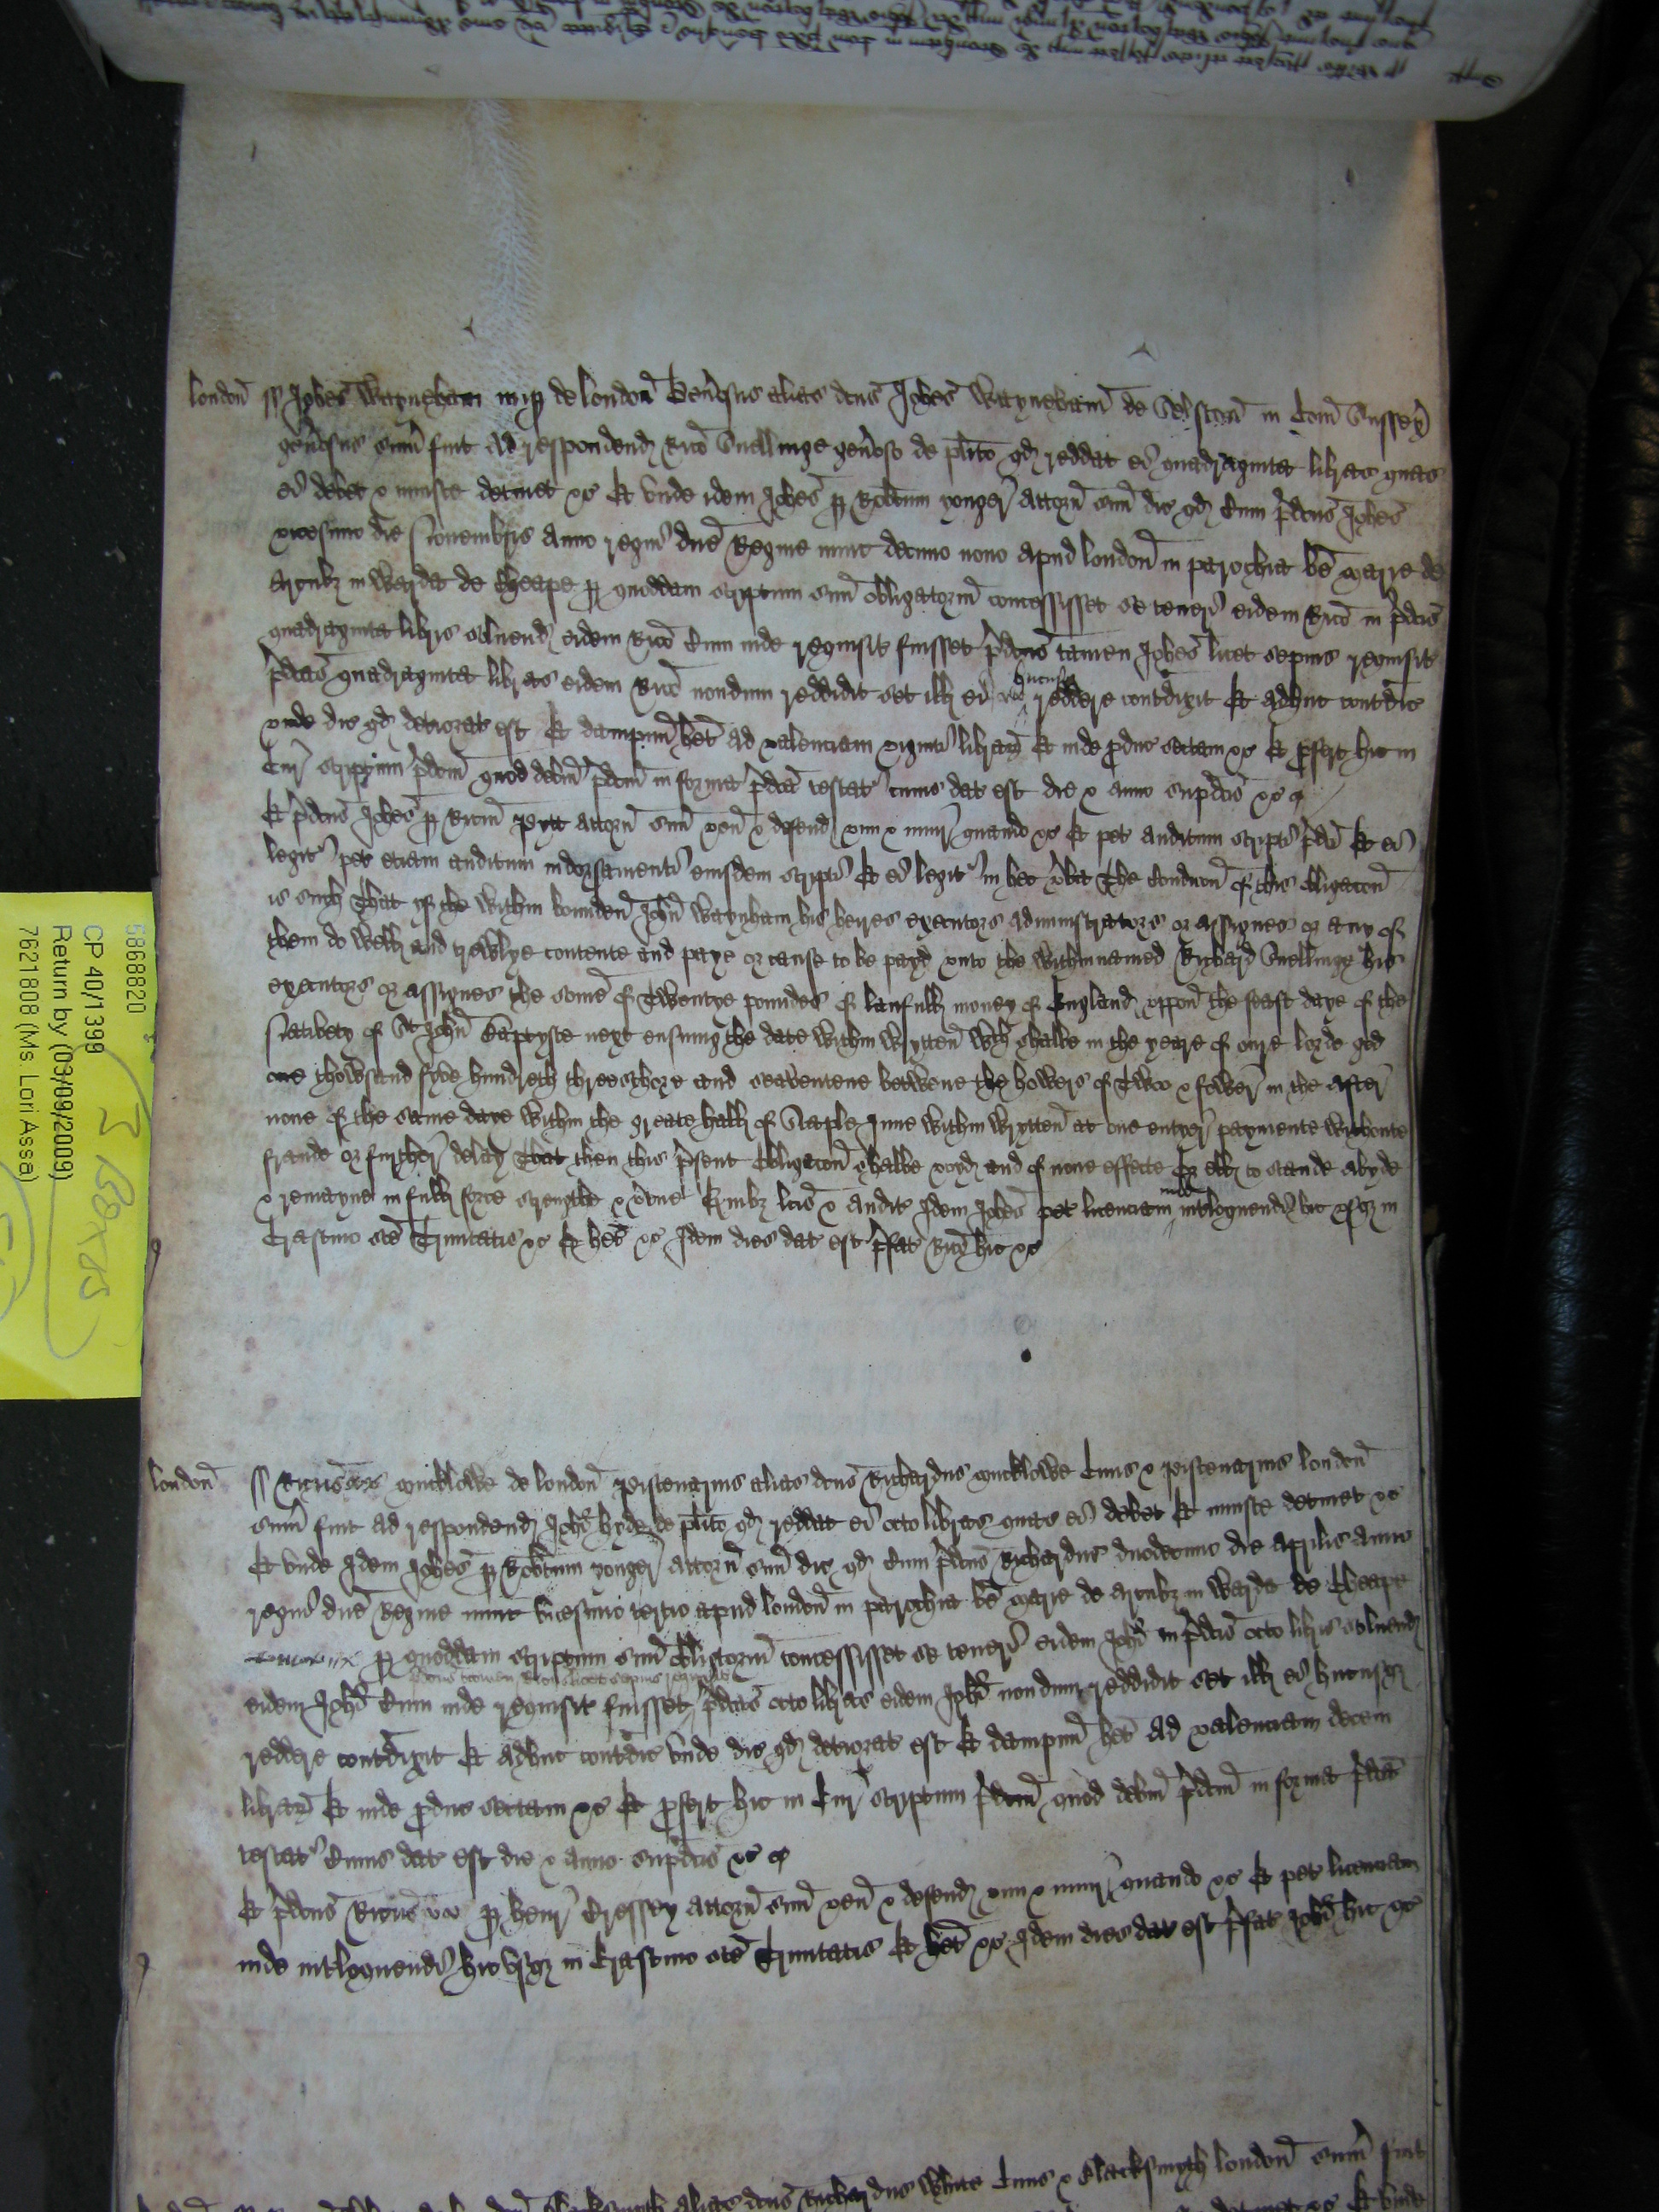 london̄ Joħes Wayneham nup de london̄ Gen̄osus alias dc̄us Joħes Wayneham de in Com̄ Sussex̄
gen̄osus sum̄ fuit ad respondend Ric̄o Snellinge gen̄oso de plīto qd reddat ei quadraginta libras quas
ei debet & iniuste detinet &c Et vnde idem Joħes p Rob̄tum yonger attorn̄ suū dic qd Cum p̄dc̄us Joħes
vicesimo die Novembris anno regni dn̄e Regine nunc decimo nono apud london̄ in parochia bē Marie de
Arcubz in warda de Cheape p quoddam scriptum suū obligatoriū concessisset se teneri eidem Ric̄o in p̄dc̄is
quadraginta libris solvend eidem Ric̄o Cum inde requisit fuisset p̄dc̄us tamen Joħes licet sepius requisit
p̄dc̄as quadraginta libras eidem Ric̄o nondum reddidit set ill ei hucusqz reddere contrdixit Et adhuc contrdic
vnde dic qd deteriorat est Et dampnū het ad valenciam viginti librar Et inde pduc sectam &c Et pfert hic in
Cur scriptum p̄dc̄m quod debit̄ p̄dc̄m in forma p̄dc̄a testat cuius dat est die & anno sup̄dc̄is &c
Et p̄dc̄us Joħes p Ric̄m attorn̄ suū ven̄ & defend vim & iniur quando &c Et pet auditum scripti p̄dc̄i Et ei
legit pet etiam auditum indorsamenti eiusdem scripti Et ei legit in hec vba The Condicon̄ of this obligacon̄
is such That yf the within bounden̄ John̄ Waynham his heires executors administrators or assignes or any of
them do well and trewlye contente and paye or cause to be payd vnto the within named Richard Snellinge his
executors or assignes the some of Twentye poundes of laufull money of England vppon̄ the feast daye of the
Nativety of St John̄ Baptyste next ensuing the date within wrytten̄ wch shalbe in the yeare of oure lorde god
one thowsand fyve hundreth threeschore and seaventene betwene the howers of Twoo & fower in the after
none of the same daye within the greate hall of Staple Inne within wrytten̄ at one entyer paymente withoute
fraude or further delay That then this p̄sent Obligacon̄ shalbe voyd and of none effecte Or ell to stande abyde
& remayne in full force strengthe & vtue Quibz lc̄is & audit Idem Joħes pet licenciam inde int̄loquendi hic vsqz in
Crastino sc̄e Trinitatis &c Et het &c Idem dies dat est p̄fat Ric̄o hic &c
london̄ Ric̄us Mucklowe de london̄ alias dc̄us Richardus Mucklowe Civis & london̄
sum̄ fuit ad respondend Joħi Hyde de plīto qd reddat ei octo libras quas ei debet Et iniuste detinet &c
Et vnde Idem Joħes p Rob̄tum yonger attorn̄ suū dic qd Cum p̄dc̄us Richardus duodecimo die Aprilis anno
regni dn̄e Regine nunc vicesimo tertio apud london̄ in parochia bē Marie de Arcubz in warda de Cheape
p quoddam scriptum suū obligatoriū concessisset se teneri eidem Joħi in p̄dc̄is octo libris solvend
p̄dc̄us tamen Ric̄us licet sepius requisit
eidem Joħi Cum inde requisit fuisset p̄dc̄as octo libras eidem Joħi nondum reddidit set ill ei hucusqz
reddere contrdixit Et adhuc contrdic vnde dic qd deteriorat est Et dampnū het ad valenciam decem
librar Et inde pduc sectam &c Et pfert hic in Cur scriptum p̄dc̄m quod debit̄ p̄dc̄m in forma p̄dc̄a
testat Cuius dat est die & anno sup̄dc̄is &c
Et p̄dc̄us Ric̄us p Henr Cressey attorn̄ suū ven̄ & defend vim & iniur quando &c Et pet licenciam
inde int̄loquendi hic vsqz in Crastino sc̄e Trinitatis Et het &c Idem dies dat est p̄fat Joħi hic &c
alias dc̄us Richardus White Civis & Blacksmyth london̄ sum̄ fuit
5868820
CP 40/1399
Return by (03/09/2009)
7621808 (Ms. Lori Assa)